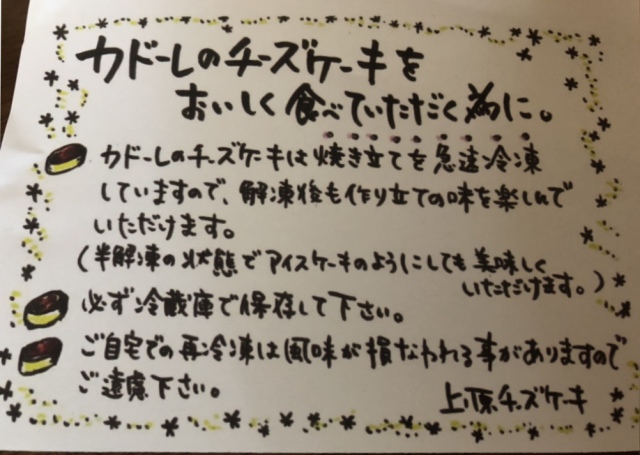 カドーレのチーズケーキを
おいしく食べていただく為に。
カドーレのチーズケーキは焼き立てを急速冷凍
していますので、解凍後も作り立ての味を楽しんで
いただけます。
(半解凍の状態でアイスケーキのようにしても美味しく
いただけます。)
必ず冷蔵庫で保存して下さい。
ご自宅での再冷凍は風味が損なわれる事がありますので
ご遠慮下さい。
上原チーズケーキ